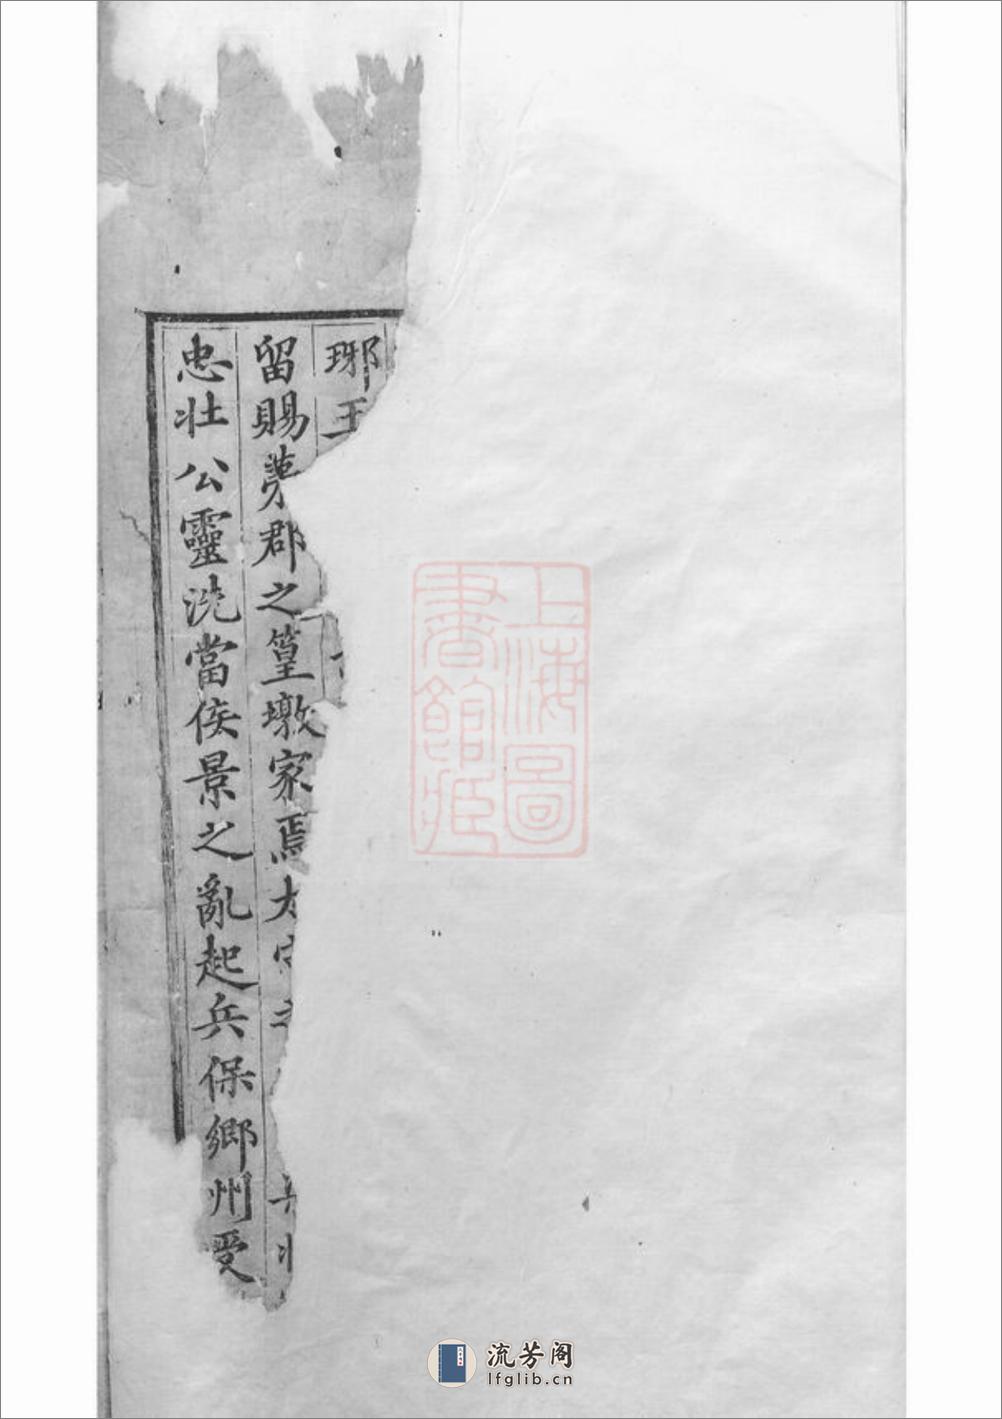 琊王
留賜苐郡之篁墩家焉
忠壯公靈洗當侯景之亂起兵保鄉州受
上海圖
書館藏
流芳阁
lfglib.cn